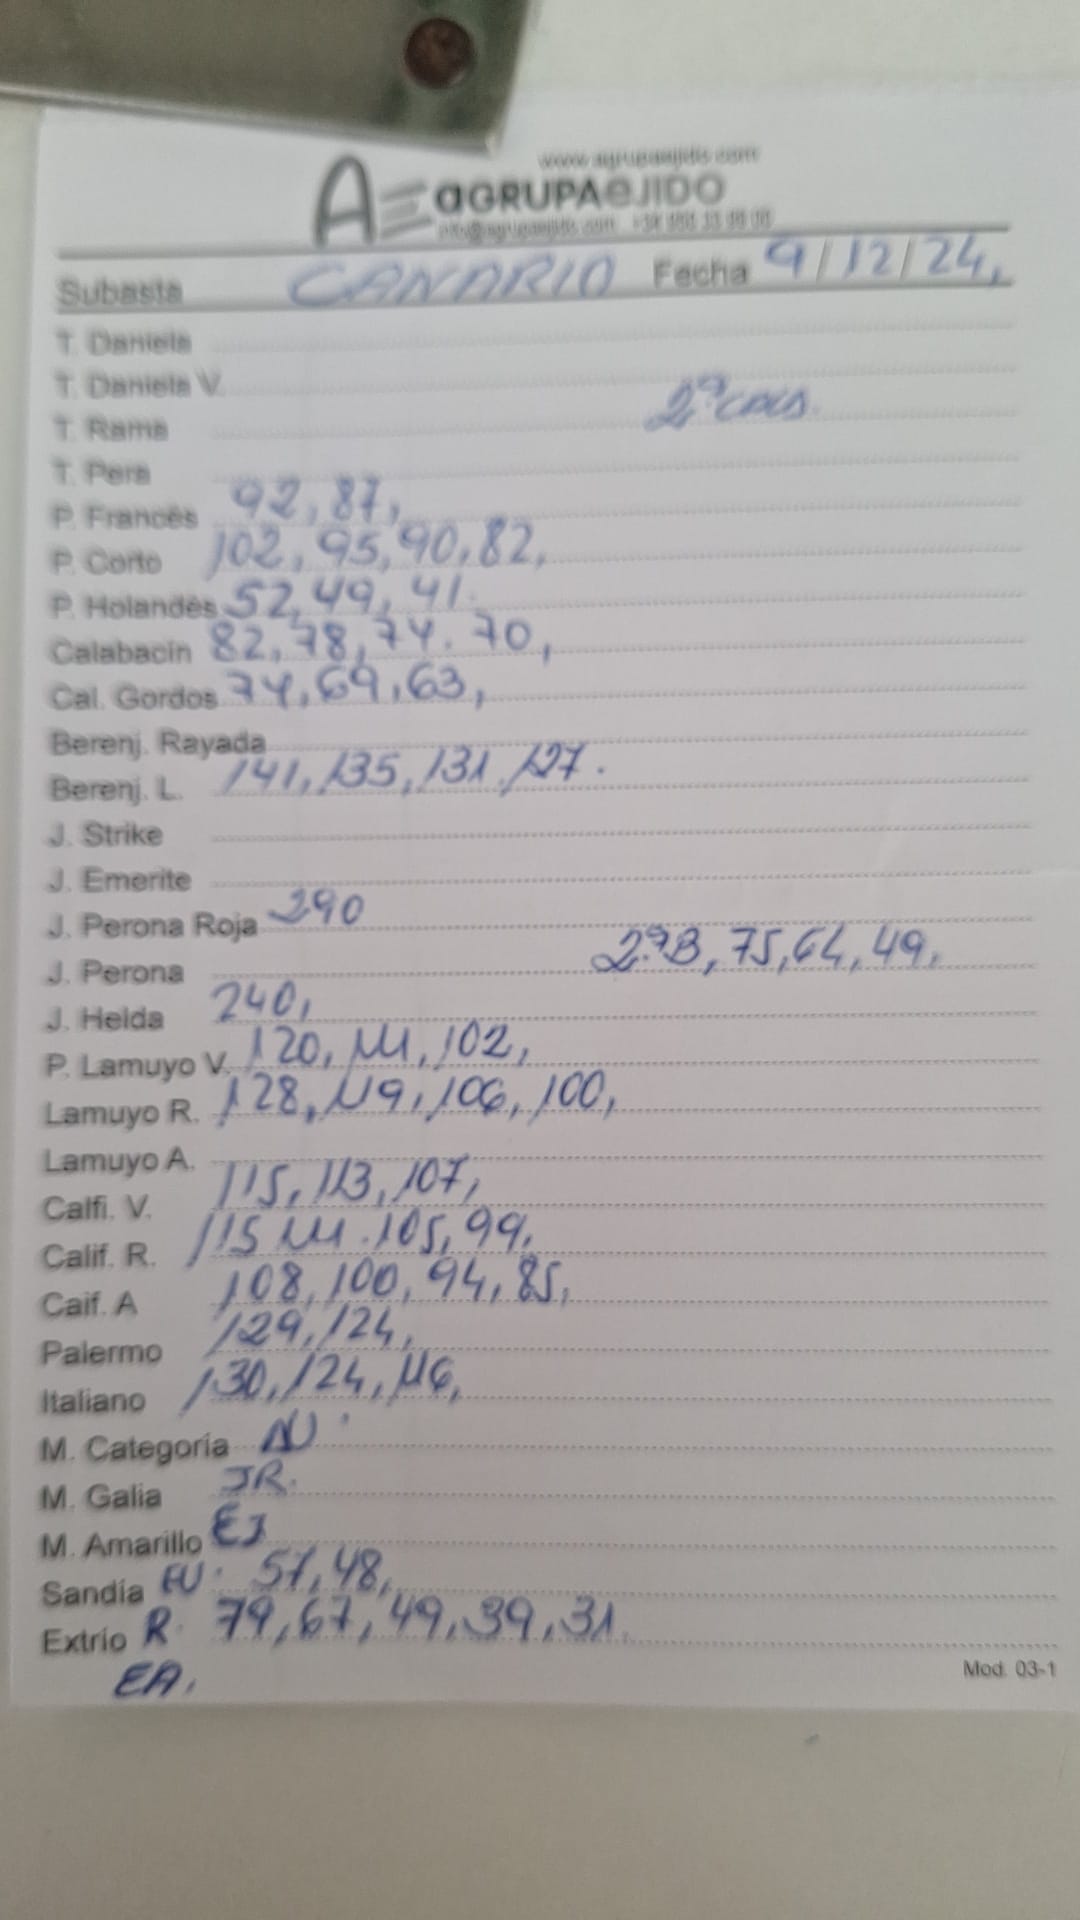 www.agrupaejido.com
AE aGRUPAeJIDO
info@agrupaejido.com
Subasta CANARIO Fecha 9/12/24,
T. Daniela
T. Daniela V.
2ª
T. Rama
T. Pera
P. Francés 92, 87,
P. Corto 102, 95, 90, 82,
P. Holandés 52, 49, 41.
Calabacín 82, 78, 74. 70,
Cal. Gordos 74, 69, 63,
Berenj. Rayada
Berenj. L. 141, 135, 131. 127.
J. Strike
J. Emerite
J. Perona Roja 290
J. Perona 2ªB, 75, 64, 49,
J. Helda 240,
P. Lamuyo V. 120, 111, 102,
Lamuyo R. 128, 119, 106, 100,
Lamuyo A.
Calfi. V. 115, 113, 107,
Calif. R. 115 111. 105, 99,
Caif. A 108, 100, 94, 85,
Palermo 129, 124,
Italiano 130, 124, 116,
M. Categoría NU.
M. Galia JR.
M. Amarillo EJ
Sandía FU. 57, 48,
Extrio R. 79, 67, 49, 39, 31.
EA.
Mod. 03-1